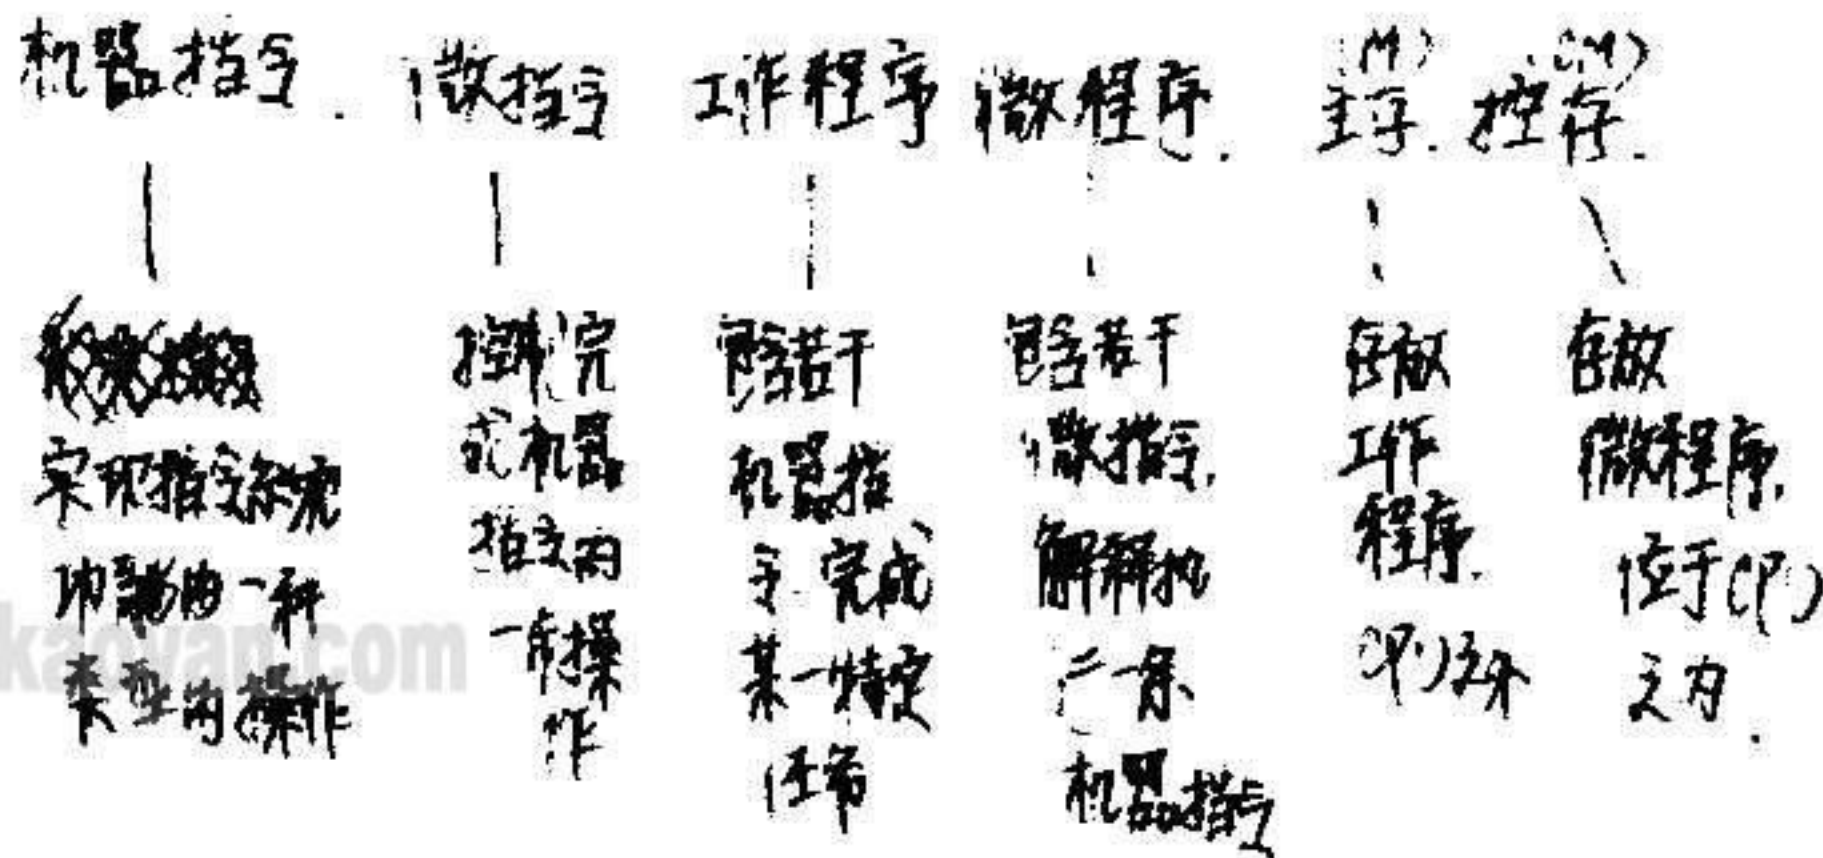 机器指令. 微指令 工作程序 微程序. (M) 主存. (CM) 控存.
实现指令系统
功能的一种
类型的操作
控制完
成机器
指令的
一布操
作
包含若干
机器指
令 完成
某一特定
任务
包含若干
微指令,
解释执
一条
机器指令
存放
工作
程序.
CPU之外
存放
微程序,
位于CPU
之内.
kaoyan.com